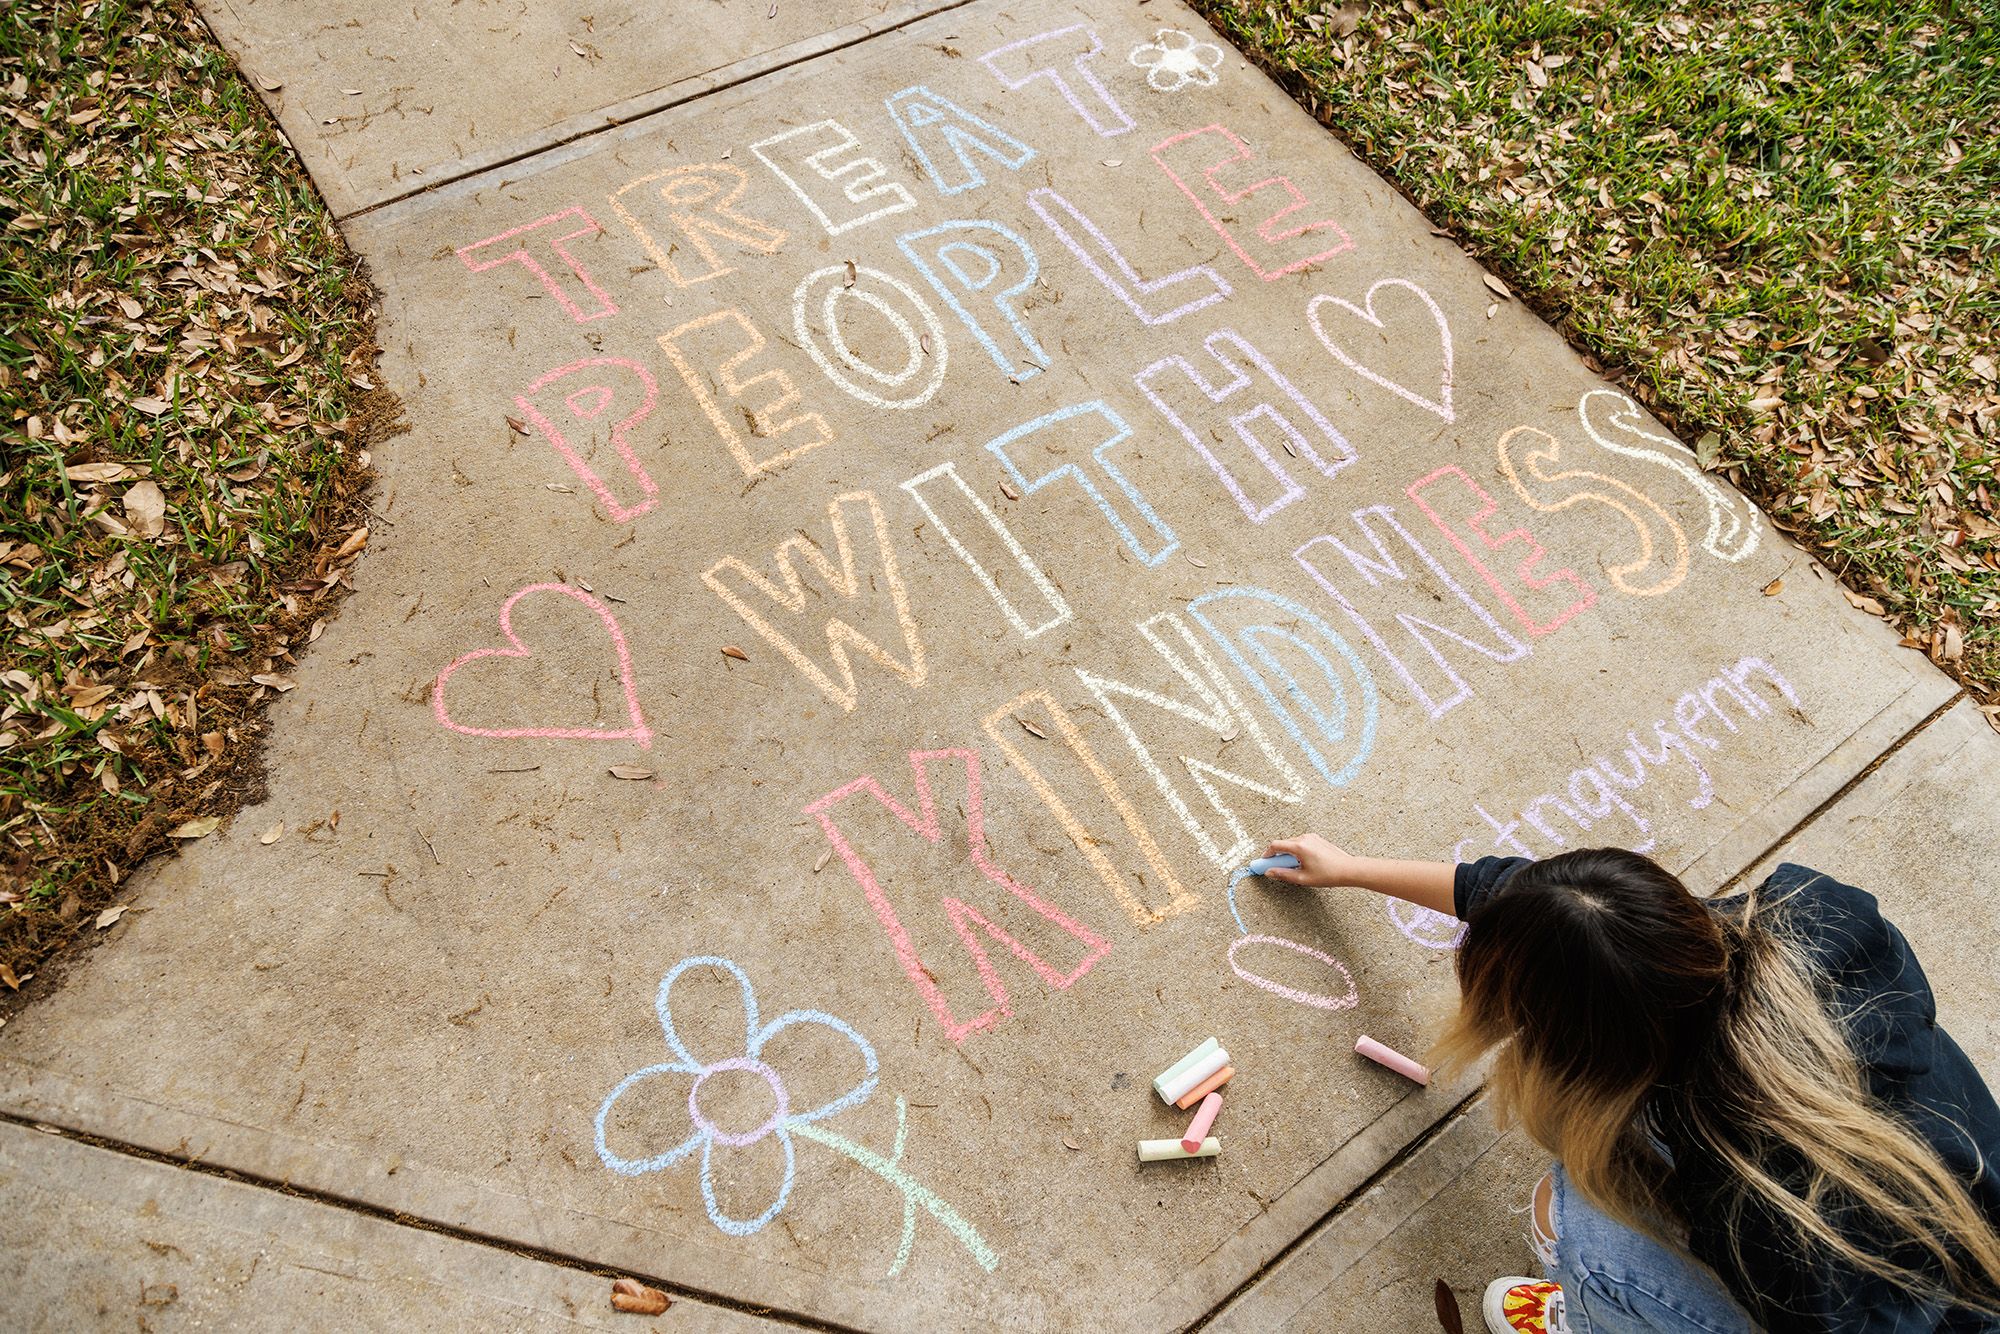 TREAT
PEOPLE
WITH
KINDNESS
@ctnquyenn